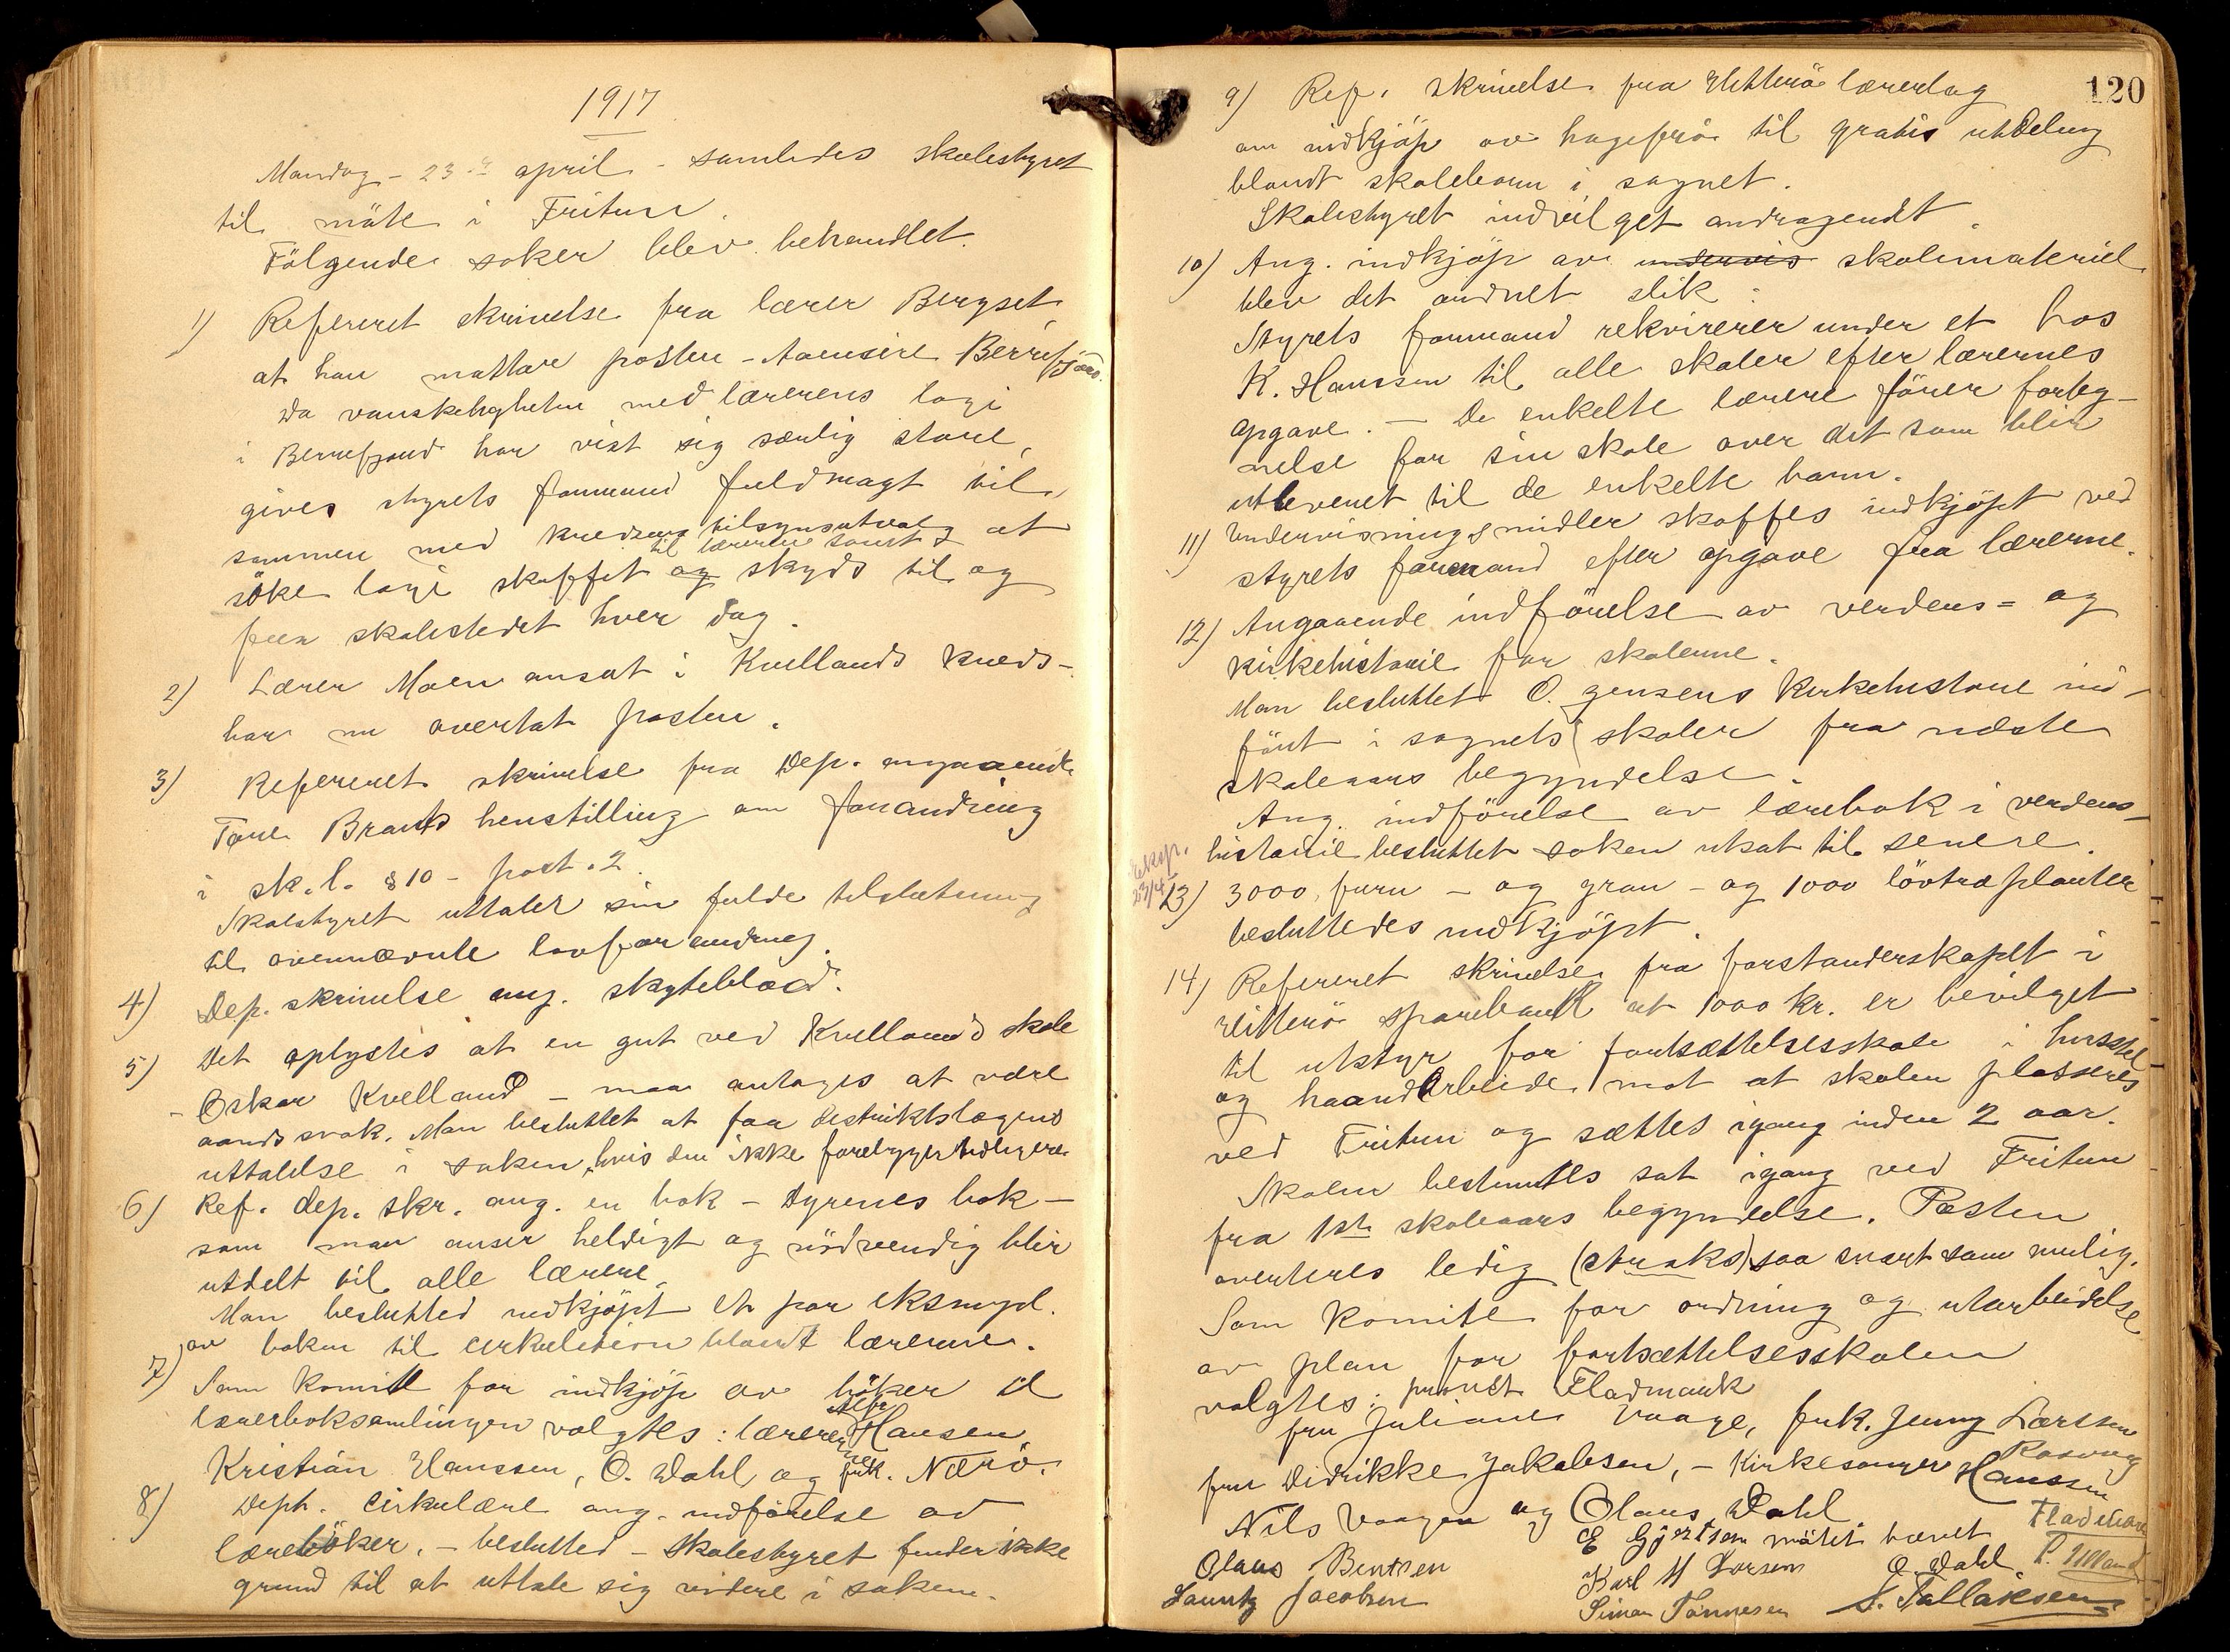 1917
Mandag - 23de april - samledes skolestyret
til möte i Fritun.
Fölgende saker blev behandlet.
1) Refereret skrivelse fra lærer Bergset
at han mottar posten - Aaensire Berrefjord.
Da vanskeligheten med lærerens logi
i Berrefjord har vist sig særlig store,
gives styrets formand fuldmagt til
sammen med kredsens tilsynsutvalg at
til læreren samt
söke logi skaffet og skyds til og
fra skolestedet hver dag.
2) Lærer Moen ansat i Kvellands kreds-
har nu overtat posten.
3) Refereret skrivelse fra Dep. angaaende
Tore Brants henstilling om forandring
i sk.l. § 10 - post. 2.
Skolestyret uttaler sin fulde tilslutning
til ovennævnte lovforandring.
4) Dep. skrivelse ang. skyteblad.
5) Det oplystes at en gut ved Kvellands skole
- Oskar Kvelland - maa antages at være
aandssvak. Man besluttet at faa distriktslægens
uttalelse i saken, hvis den ikke foreligger tidligere.
6) Ref. dep. skr. ang. en bok - Dyrenes bok -
som man anser heldigt og nödvendig blir
utdelt til alle lærere.
Man beslutted indkjöpt et par eksmpl.
av boken til cirkulation blandt lærerne.
7) Som komite for indkjöp av böker til
lærerboksamlingen valgtes: lærerne Hansen
Kristian Hanssen, O. Dahl og frk. Nærö.
8) Deph. cirkulære ang. indförelse av
læreböker. - beslutted - Skolestyret finder ikke
grund til at uttale sig videre i saken.
120
9) Ref. skrivelse fra Hitterö lærerlag
om indkjöp av hagefrö til gratis utdeling
blandt skolebarn i sognet.
Skolestyret indvilget andragendet.
10) Ang. indkjöp av undervis skolemateriel
blev det ordnet slik:
Styrets formand rekvirerer under et hos
K. Hanssen til alle skoler efter lærernes
opgave. - De enkelte lærere förer forteg-
nelse for sin skole over det som blir
utleveret til de enkelte barn.
11) Undervisningsmidler skaffes indkjöpt ved
styrets formand efter opgave fra lærerne.
12) Angaaende indförelse av verdens= og
kirkehistorie for skolerne.
Man besluttet O. Jensens Kirkehistorie ind-
fört i sognets skoler fra næste
skoleaars begyndelse.
Ang. indförelse av lærebok i verdens-
historie besluttet saken utsat til senere.
Eksp.
23/4
13) 3000 furu - og gran - og 1000 lövtræplanter
besluttedes indkjöpt.
14) Refereret skrivelse fra forstanderskapet i
Hitterö sparebank at 1000 kr. er bevilget
til utstyr for fortsættelsesskole i husstel-
og haandarbeide mot at skolen plasseres
ved Fritun og sættes igang inden 2 aar.
Skolen bestemtes sat igang ved Fritun
fra 1ste skoleaars begyndelse. Posten
averteres ledig (straks) saa snart som mulig.
Som komite for ordning og utarbeidelse
av plan for fortsættelsesskolen
valgtes: provst Fladmark
fru Juliane Vaage, frk. Jenny Larssen
fru Didrikke Jakobsen, - Kirkesanger Hanssen
Rasvåg
Nils Vaagen og Olaus Dahl.
E Gjertsen mötet hævet Fladmark
Olaus Bentsen Karl M Larsen O. Dahl P. Ulland
Lauritz Jacobsen Simon Tönnesen S. Tallaksen